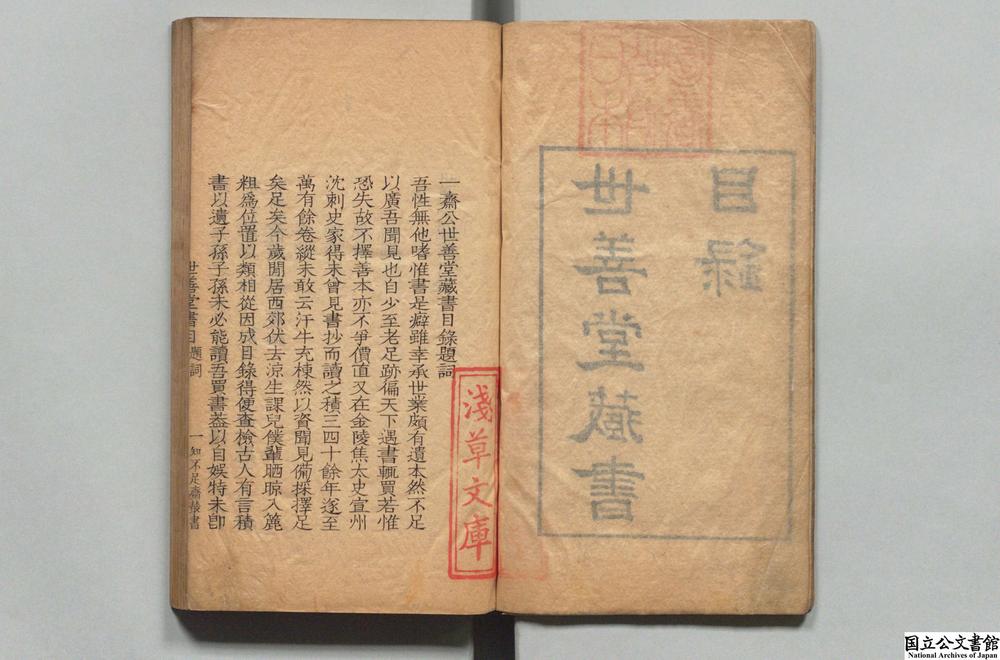 世善堂藏書
目録
一齋公世善堂藏書目錄題詞
吾性無他嗜惟書是癖雖幸承世業頗有遺本然不足
以廣吾聞見也自少至老足跡徧天下遇書輒買若惟
恐失故不擇善本亦不爭價直又在金陵焦太史宣州
沈刺史家得未曾見書抄而讀之積三四十餘年遂至
萬有餘卷縱未敢云汗牛充棟然以資聞見備採擇足
矣足矣今歲閒居西郊伏去凉生課兒僕輩晒晾入簏
粗爲位置以類相從因成目錄得便查檢古人有言積
書以遺子孫子孫未必能讀吾買書葢以自娛特未卽
世善堂書目 題詞 一 知不足齋叢書
淺草文庫
国立公文書館
National Archives of Japan